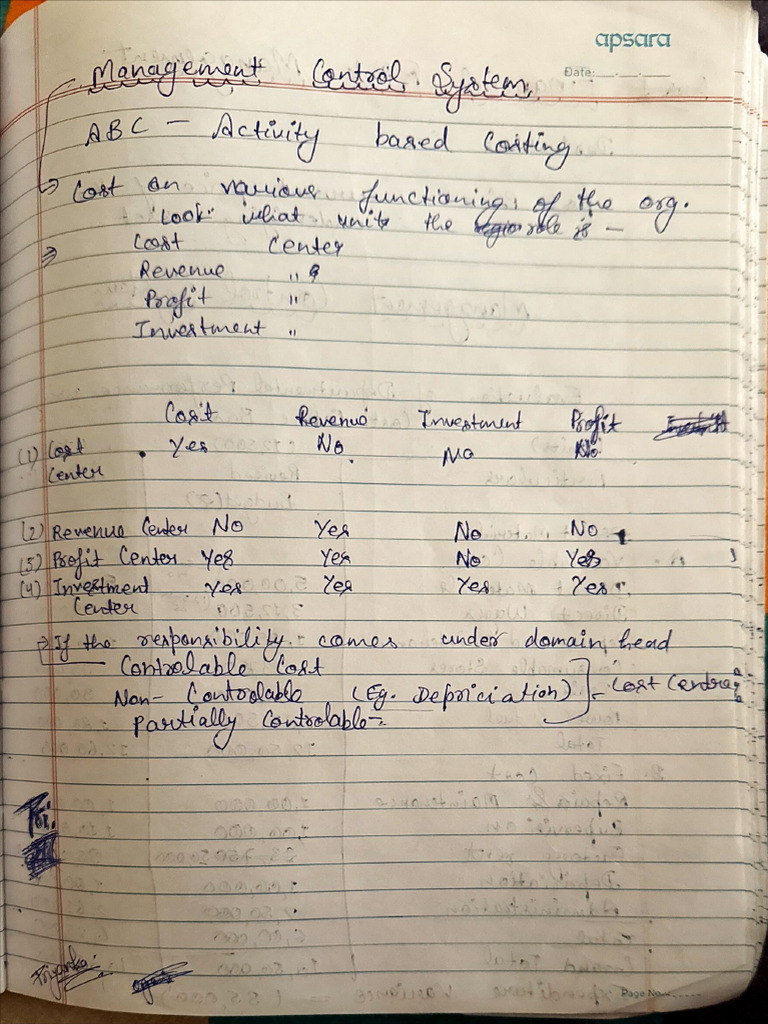 apsara
Date:
Management Control System
ABC - Activity based Costing.
Cost on various functioning of the org.
Look what units the role is -
Cost Center
Revenue "
Profit "
Investment "
Cost Revenue Investment Profit
(1) Cost Yes No No No
Center
(2) Revenue Center No Yes No No
(3) Profit Center Yes Yes No Yes
(4) Investment Yes Yes Yes Yes
Center
If the responsibility comes under domain head
Controlable Cost
Non-Controlable (Eg. Depriciation) - Cost Centre
Partially Controlable
Priyanka
Page No.